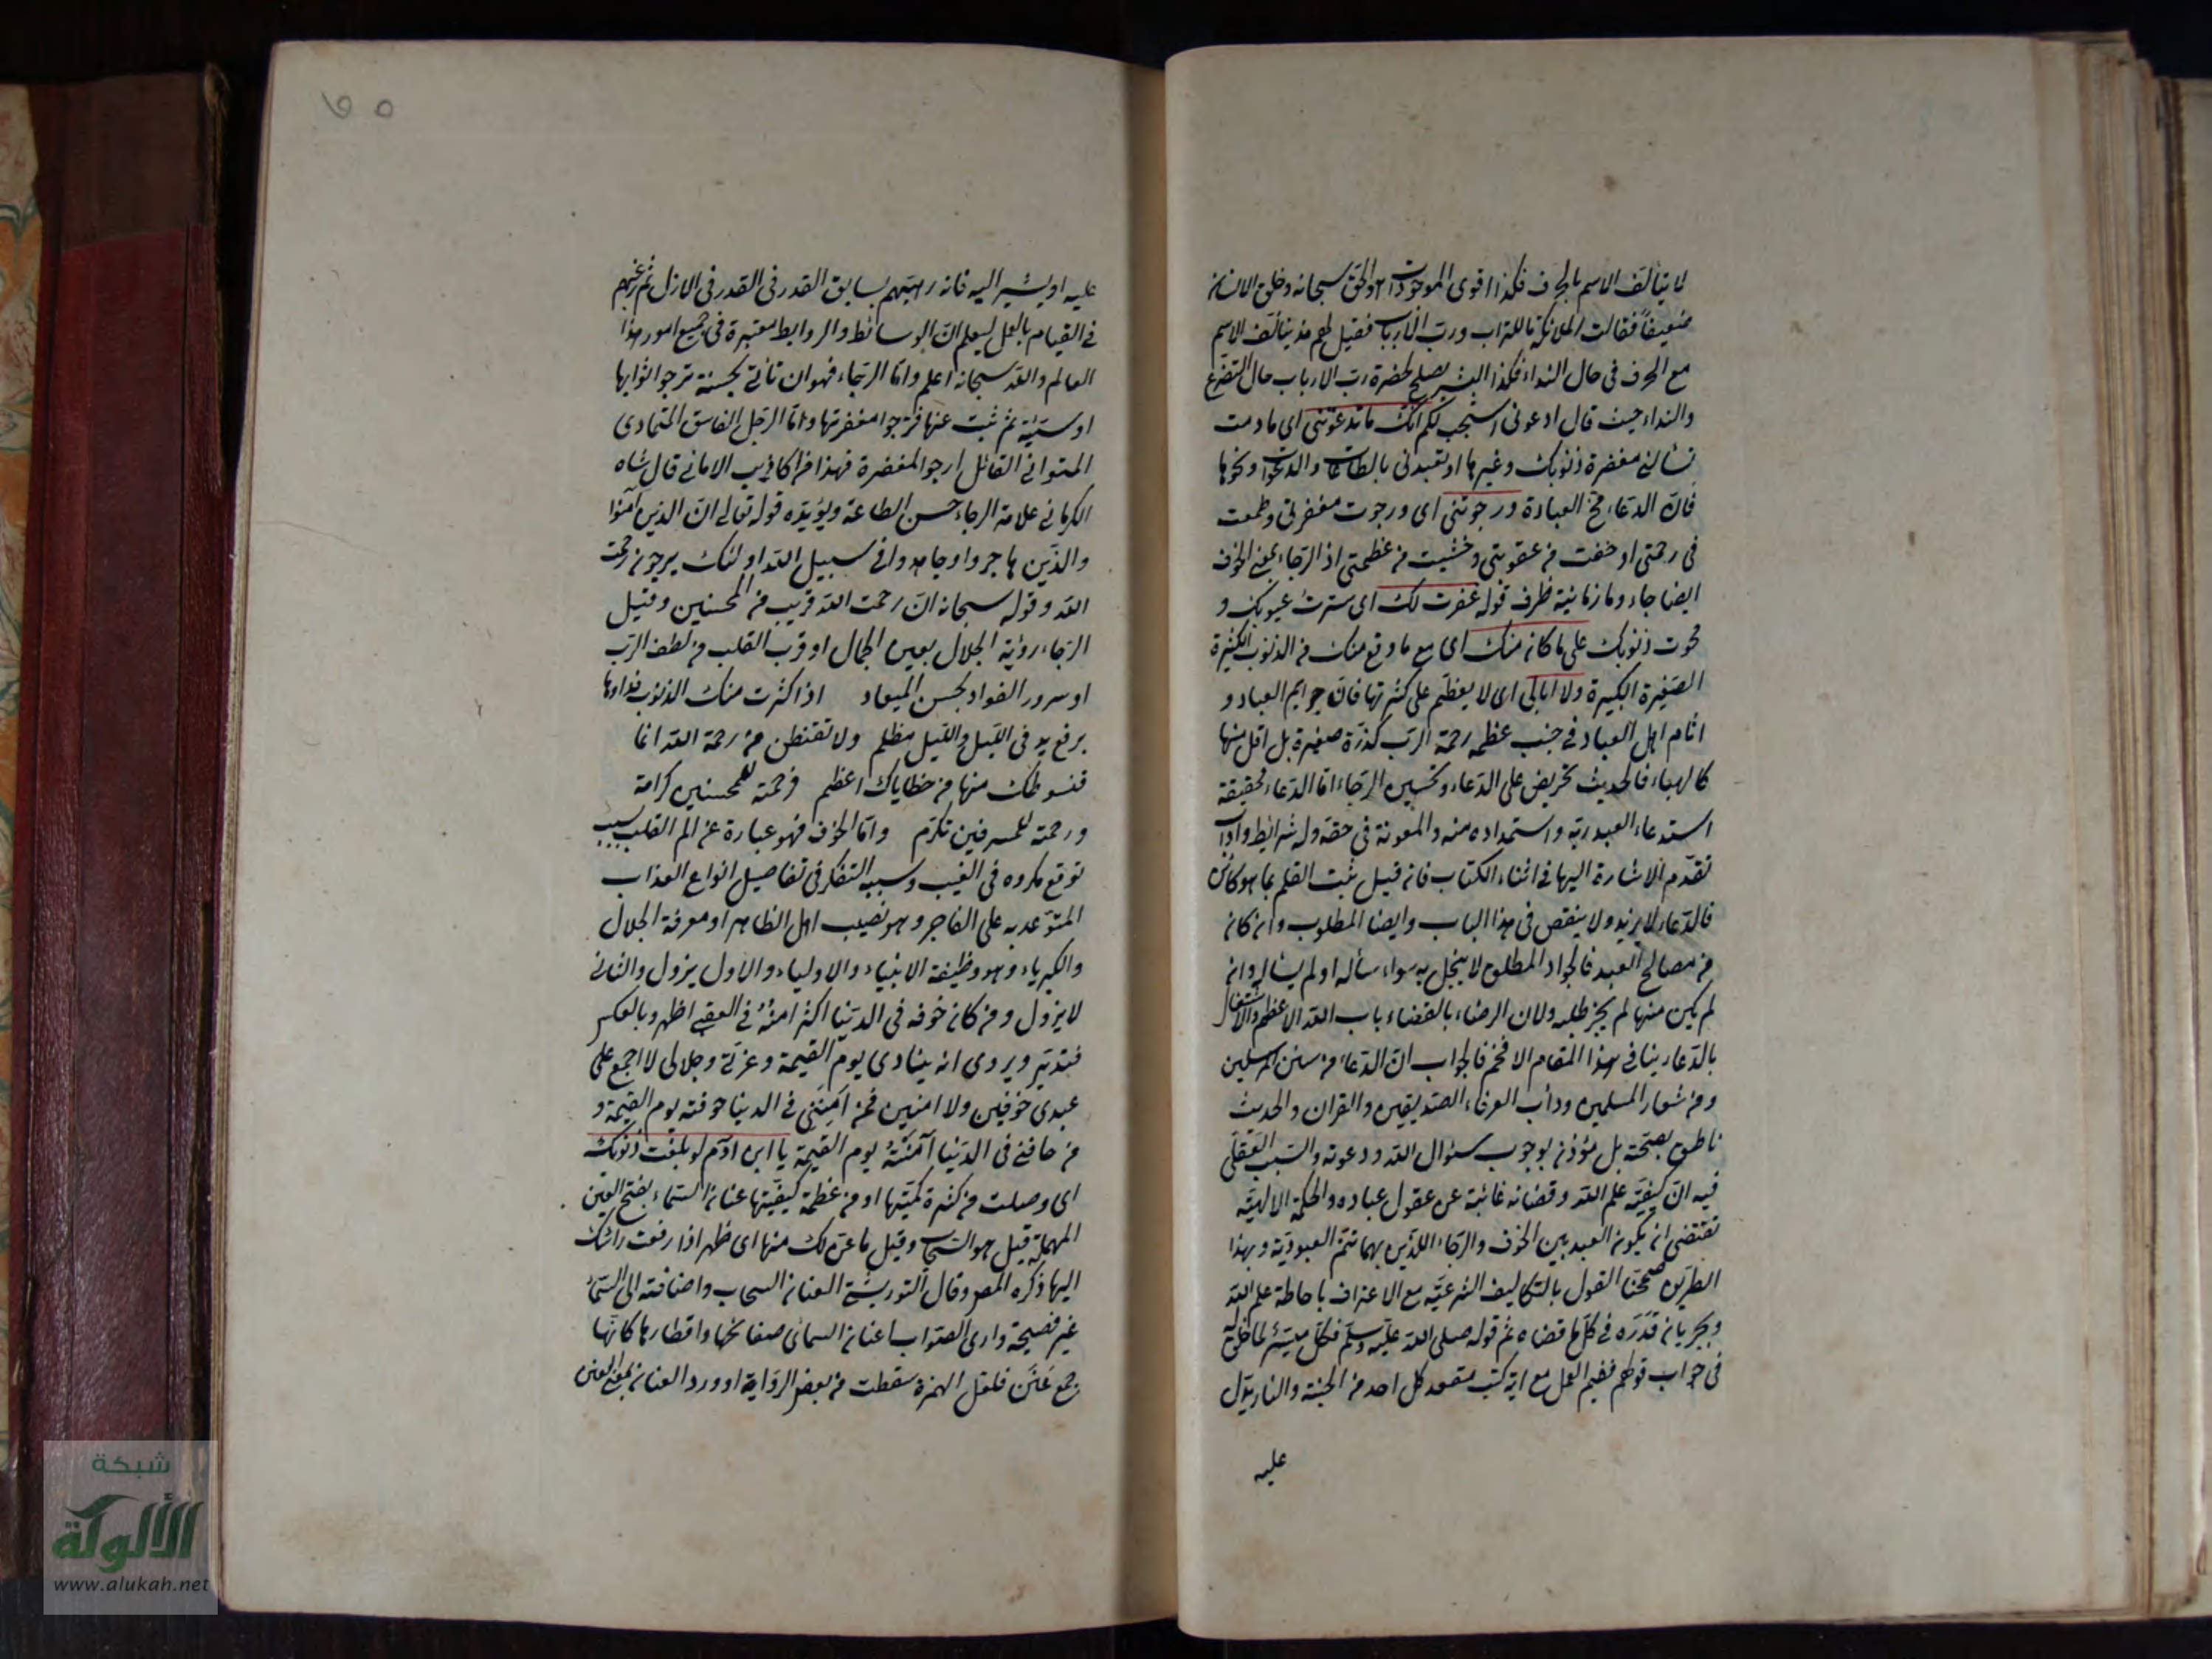 لا يتألف الاسم بالحرف فكذا اقوى الموجودات هو الحق سبحانه وخلق الانسان
ضعيفاً فقالت الملائكة ما للتراب ورب الارباب فقيل لهم قد يتألف الاسم
مع الحرف في حال النداء فكذا البشر يصلح لحضرة رب الارباب حال التضرع
والنداء حيث قال ادعوني استجب لكم انك ما دعوتني اى ما دمت
تسألني مغفرة ذنوبك وغيرها او تعبدني بالطاعات والدعوات ونحوها
فان الدعاء مخ العبادة ورجوتني اى ورجوت مغفرتي وطمعت
في رحمتي او خفت من عقوبتي وخشيت من عظمتي اذ الرجاء بمعنى الخوف
ايضا جاء وما زمانية ظرف قوله غفرت لك اى سترت عيوبك و
محوت ذنوبك على ما كان منك اى مع ما وقع منك من الذنوب الكثيرة
الصغيرة الكبيرة ولا ابالى اى لا يعظم على كثرتها فان جرايم العباد و
اثام اهل العباد في جنب عظمة رحمة الرب كذرة صغيرة بل اقل منها
كالهباء فالحديث تحريض على الدعاء وتحسين الرجاء اما الدعاء فحقيقة
استدعاء العبد ربه واستمداده منه والمعونة في حقه وله شرائط وآداب
تقدم الاشارة اليها في اثناء الكتاب فان قيل ثبت القلم بما هو كائن
فالدعاء لا يزيد ولا ينقص في هذا الباب وايضا المطلوب وان كان
من مصالح العبد فالجواد المطلق لا يبخل به سواء سأله او لم يسأله وان
لم يكن منها لم يجز طلبه ولان الرضاء بالقضاء باب الله الاعظم والاشتغال
بالدعاء ينافي هذا المقام الافخم فالجواب ان الدعاء من سنن المرسلين
ومن شعار المسلمين ودأب العرفاء الصديقين والقران والحديث
ناطق بصحته بل مؤذن بوجوب سؤال الله ودعوته والسبب العقلي
فيه ان كيفية علم الله وقضائه غائبة عن عقول عباده والحكمة الالهية
تقتضي ان يكون العبد بين الخوف والرجاء اللذين بهما تتم العبودية وبهذا
الطريق صححنا القول بالتكاليف الشرعية مع الاعتراف باحاطة علم الله
وبجريان قدره في كل ما قضاه ثم قوله صلى الله عليه وسلم فكل ميسر لما خلق له
في جواب قولهم ففيم العمل مع انه كتب مقعد كل احد من الجنة والنار يدل
عليه
عليه او يشير اليه فانه رهبهم بسابق القدر في القدر في الازل ثم رغبهم
في القيام بالعمل ليعلم ان الوسائط والروابط معتبرة في جميع امور هذا
العالم والله سبحانه اعلم واما الرجاء فهو ان تاتي بحسنة ترجو ثوابها
او سيئة ثم تبت عنها ترجوا مغفرتها واما الرجل الفاسق المتمادى
المتواني القائل ارجو المغفرة فهذا من اكاذيب الاماني قال شاه
الكرماني علامة الرجاء حسن الطاعة ويؤيده قوله تعالى ان الذين آمنوا
والذين هاجروا وجاهدوا في سبيل الله اولئك يرجون رحمت
الله وقوله سبحانه ان رحمت الله قريب من المحسنين وقيل
الرجاء رؤية الجلال بعين الجمال او قرب القلب من لطف الرب
او سرور الفواد بحسن الميعاد اذا كثرت منك الذنوب فداوها
برفع يد في الليل والليل مظلم ولا تقنطن من رحمة الله انما
قنوطك منها من خطاياك اعظم فرحمته للمحسنين كرامة
ورحمته للمسرفين تكرم واما الخوف فهو عبارة عن الم القلب بسبب
توقع مكروه في الغيب وسببه التفكر في تفاصيل انواع العذاب
المتوعد به على الفاجر وهو نصيب اهل الظاهر او معرفة الجلال
والكبرياء وهو وظيفة الانبياء والاولياء والاول يزول والثاني
لا يزول ومن كان خوفه في الدنيا اكثر امنه في العقبى اظهر وبالعكس
فتدبر ويروى انه ينادى يوم القيمة وعزتي وجلالى لا اجمع على
عبدى خوفين ولا امنين فمن آمنني في الدنيا خوفته يوم القيمة و
من خافني في الدنيا آمنته يوم القيمة يا ابن ادم لو بلغت ذنوبك
اى وصلت من كثرة كميتها او من عظمة كيفيتها عنان السماء بفتح العين
المهملة قيل هو السحاب وقيل ما عن لك منها اى ظهر اذا رفعت رأسك
اليها ذكره المص وقال التوربشتي العنان السحاب واضافته الى السماء
غير فصيحة وارى الصواب اعنان السمائ صفائحها واقطارها كانها
جمع عنن فلعل الهمزة سقطت من بعض الرواية او ورد العنان بمعنى العنن